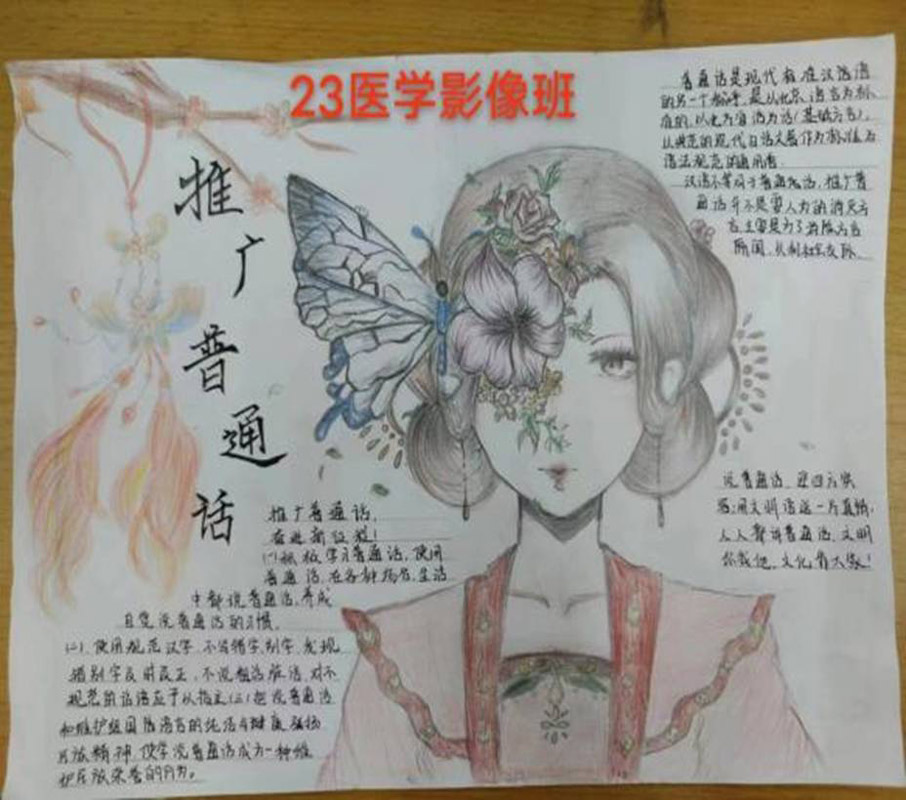 23医学影像班
推
广
普
通
话
普通话是现代标准汉语
的另一个称呼,是以北京语音为标
准的,以北方官话为话(基础方言),
以典范的现代白话文著作为标准
语法规范的通用语
汉语不等同于普通话,推广普
通话并不是要人为的消灭方
言,主要是为了消除方言
隔阂,以利社会交际
说普通话,迎四方宾
客;用文明语送一片真情。
人人都讲普通话,文明
你我他,文化靠大家!
推广普通话,
奋进新征程!
(一)积极学习普通话,使用
普通话,在各种场合,生活
中都说普通话,养成
自觉说普通话的习惯。
(二).使用规范汉字,不写错字,别字,发现
错别字及时改正,不说粗话脏话,对不
规范的话语应予以指正(三)把说普通话
和维护祖国语言的纯洁与健康,弘扬
民族精神,使学说普通话成为一种维
护民族荣誉的行为。